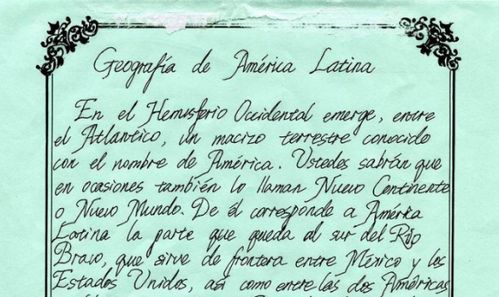 Geografía de América Latina
En el Hemisferio Occidental emerge, entre
el Atlantico, un macizo terrestre conocido
con el nombre de América. Ustedes sabrán que
en ocasiones también lo llaman Nuevo Continente
o Nuevo Mundo. De él corresponde a América
Latina la parte que queda al sur del Río
Bravo, que sirve de frontera entre México y los
Estados Unidos, así como entre las dos Américas